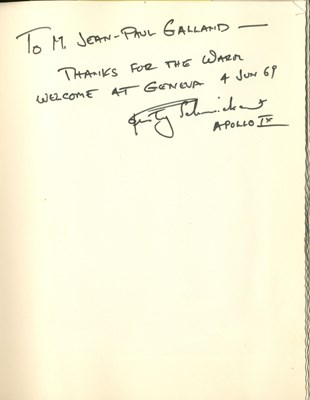 To M. JEAN-PAUL GALLAND —
THANKS FOR THE WARM
WELCOME AT GENEVA 4 JUN 69
Rusty Schweickart
APOLLO IX